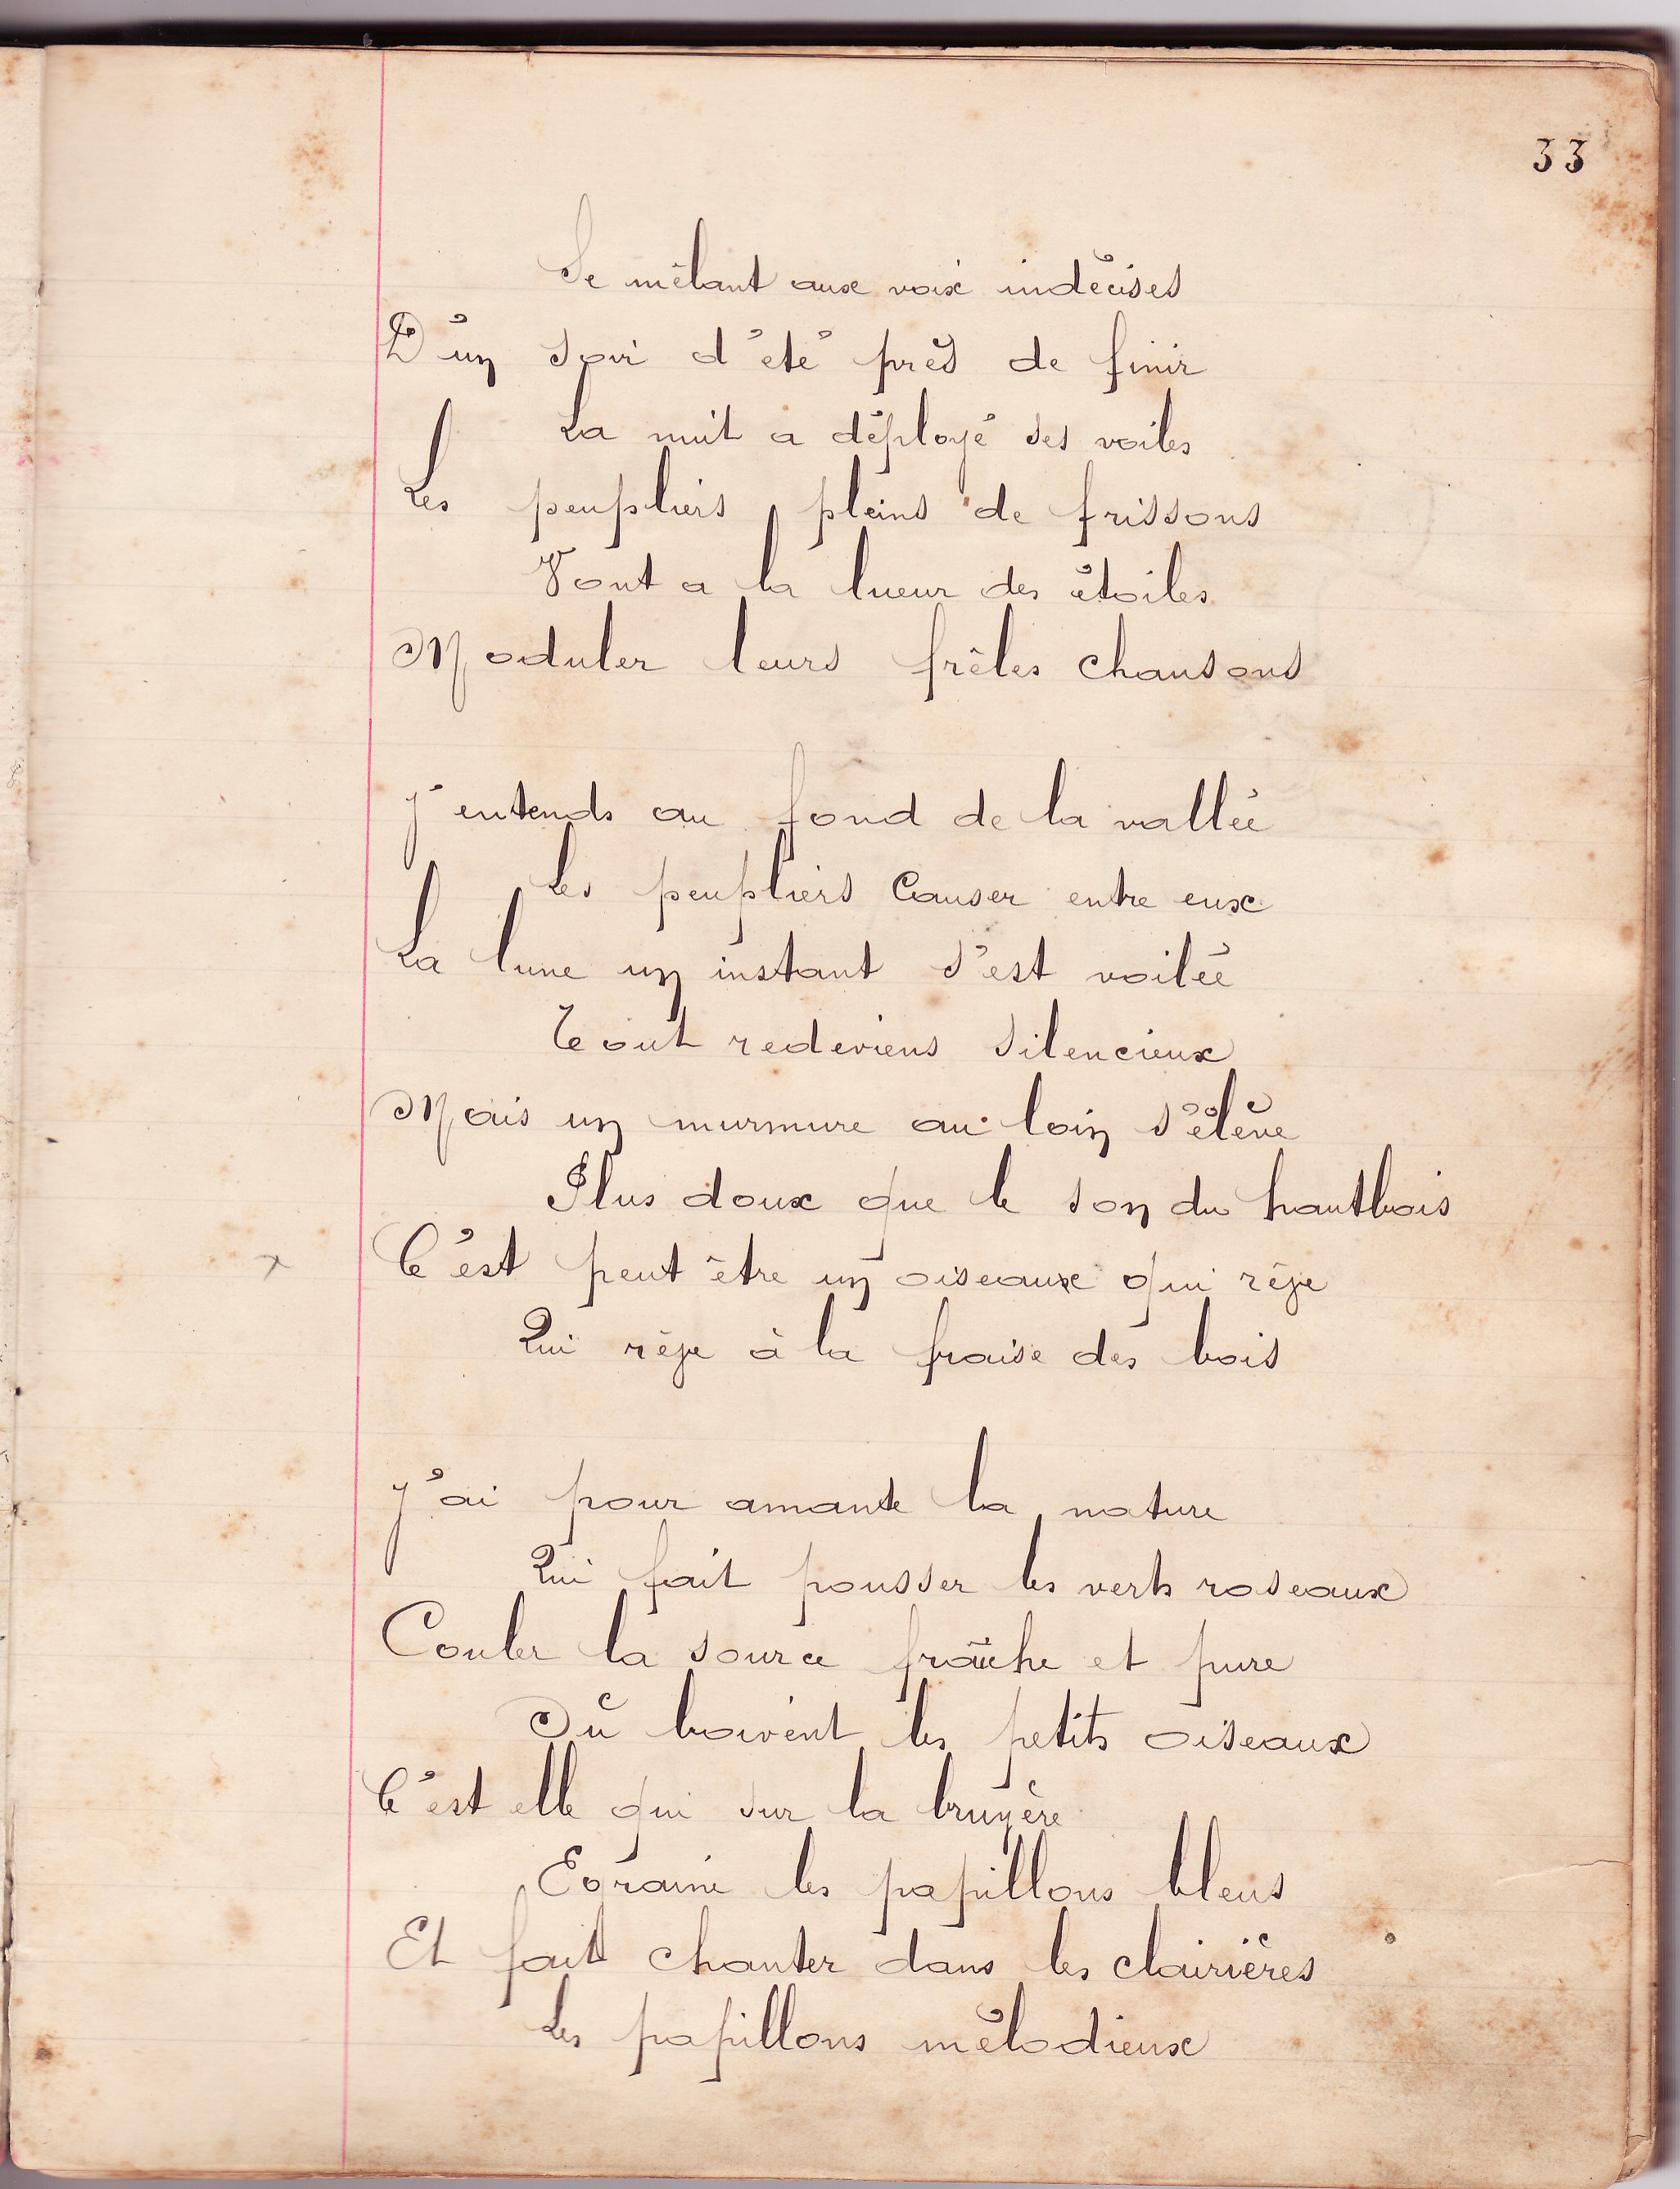 33
Se mêlant aux voix indécises
D'un soir d'été près de finir
La nuit a déployé ses voiles
Les peupliers pleins de frissons
Vont a la lueur des étoiles
Moduler leurs frêles chansons
J'entends au fond de la vallée
Les peupliers causer entre eux
La lune un instant s'est voilée
Tout redeviens silencieux
Mais un murmure au loin s'élève
Plus doux que le son du hautbois
C'est peut être un oiseaux qui rêve
Qui rêve à la fraise des bois
J'ai pour amante la nature
Qui fait pousser les verts roseaux
Couler la source fraîche et pure
Où boivent les petits oiseaux
C'est elle qui sur la bruyère
les papillons bleus
Et fait chanter dans les clairières
Les papillons mélodieux